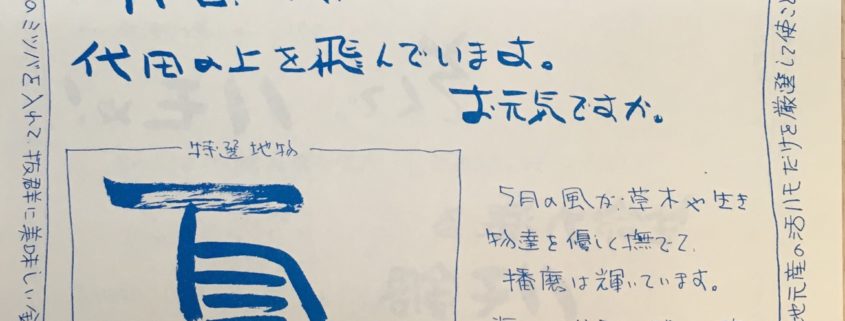 代田の上を飛んでいます。
お元気ですか。
特選地物
5月の風が、草木や生き
物達を優しく撫でて、
播磨は輝いています。
のミツバを入れて、抜群に美味しい
地元産の活ハモだけを厳選して使